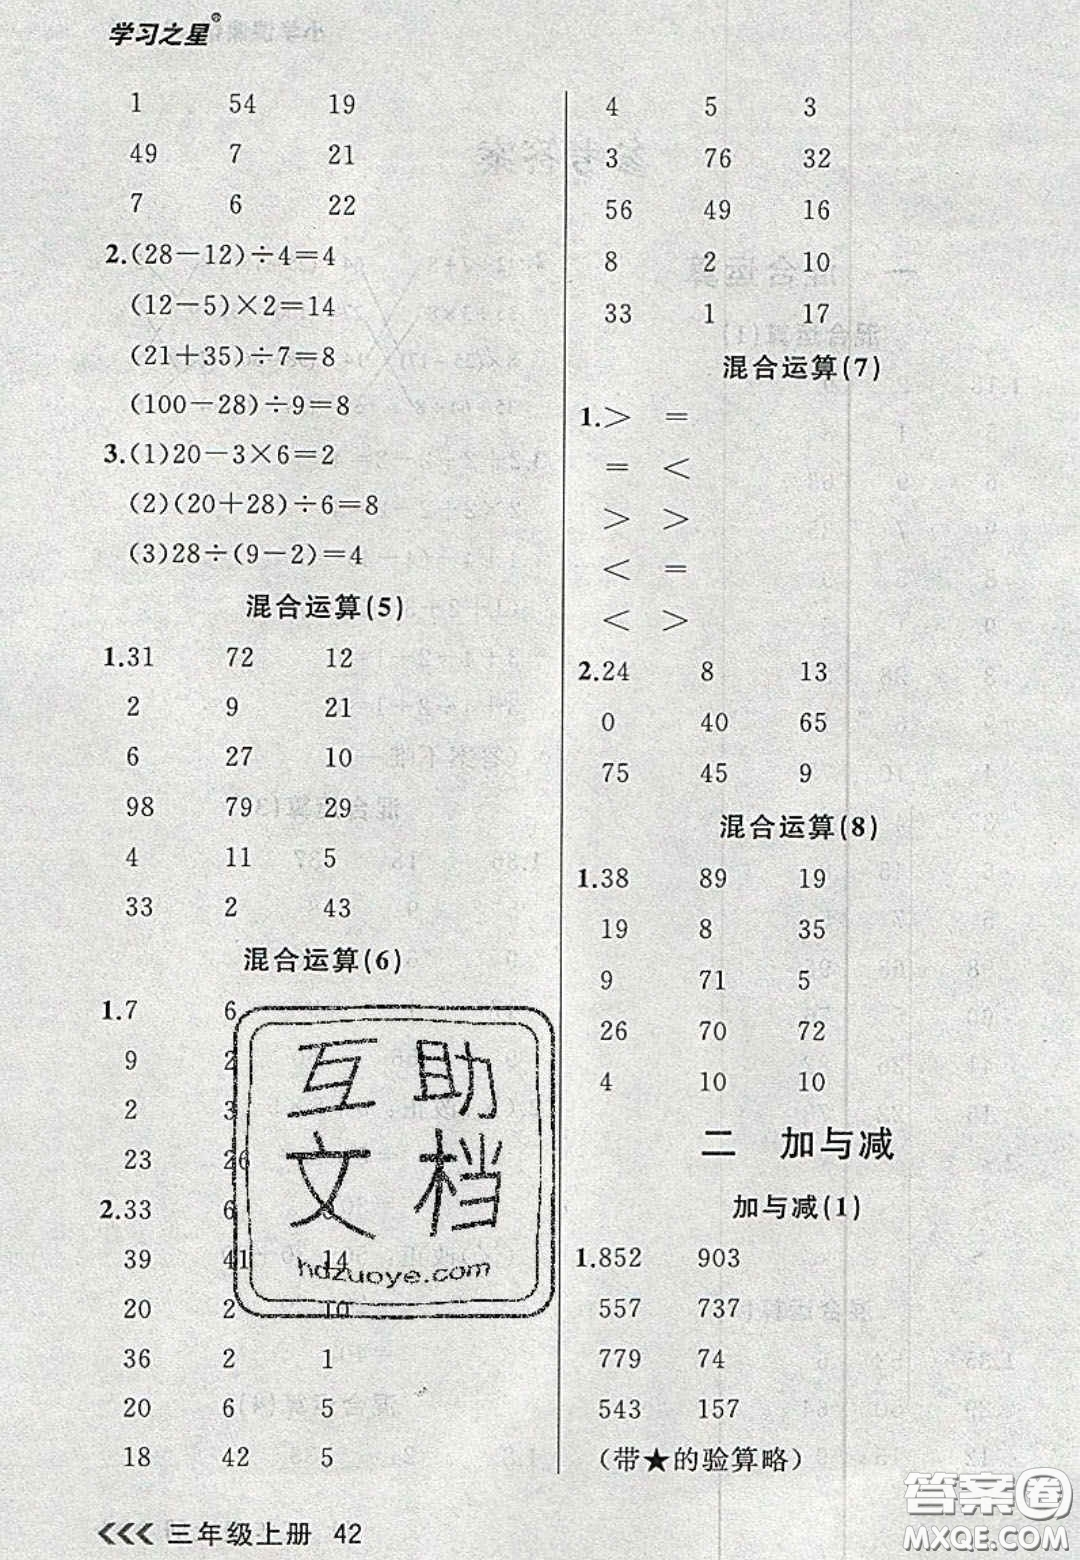 学习之星
1 54 19
49 7 21
7 6 22
2.(28－12)÷4＝4
(12－5)×2＝14
(21＋35)÷7＝8
(100－28)÷9＝8
3.(1)20－3×6＝2
(2)(20＋28)÷6＝8
(3)28÷(9－2)＝4
混合运算(5)
1.31 72 12
2 9 21
6 27 10
98 79 29
4 11 5
33 2 43
混合运算(6)
1.7 6
9 2
2 3
23 26
2.33 6
39 41 14
20 2 10
36 2 1
20 6 5
18 42 5
互助
文档
hdzuoye.com
三年级上册 42
4 5 3
3 76 32
56 49 16
8 2 10
33 1 17
混合运算(7)
1.＞ ＝
＝ ＜
＞ ＞
＜ ＝
＜ ＞
2.24 8 13
0 40 65
75 45 9
混合运算(8)
1.38 89 19
19 8 35
9 71 5
26 70 72
4 10 10
二 加与减
加与减(1)
1.852 903
557 737
779 74
543 157
(带★的验算略)
答案圈
MXQE.COM